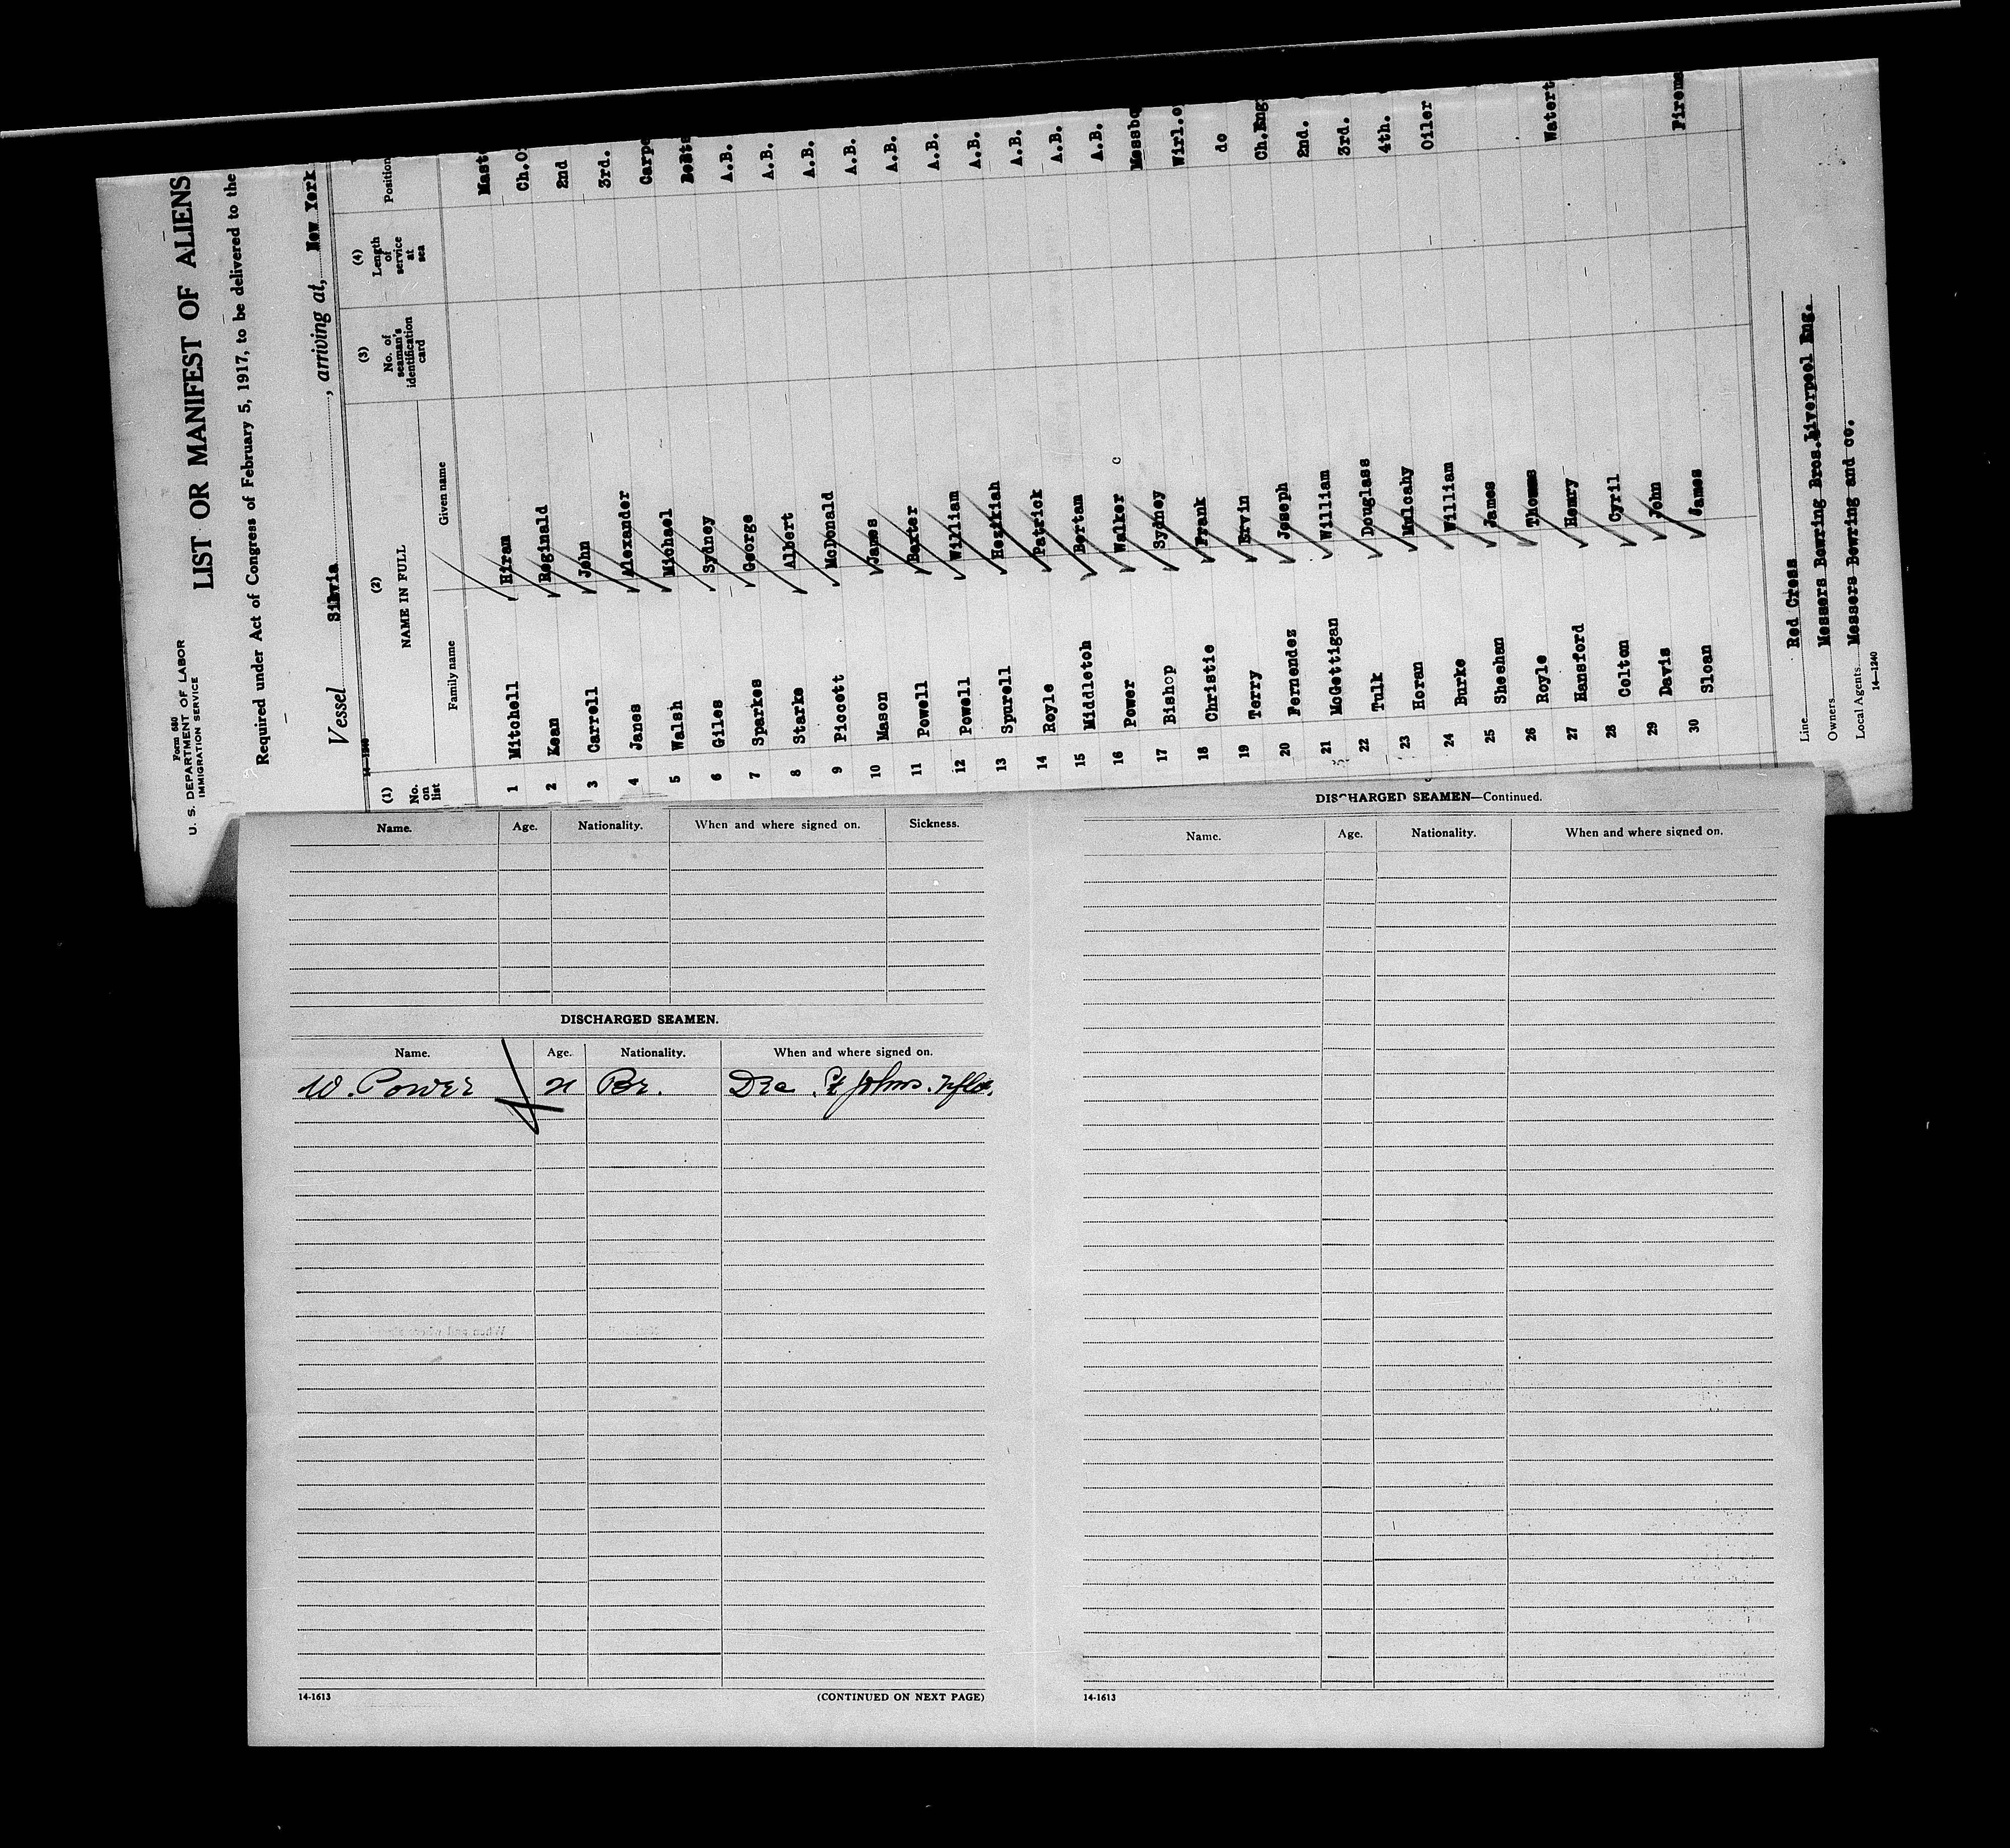 Form 680
U. S. DEPARTMENT OF LABOR
IMMIGRATION SERVICE
LIST OR MANIFEST OF ALIENS
Required under Act of Congress of February 5, 1917, to be delivered to the
Vessel Silvia, arriving at, New York
(1) No. on list (2) NAME IN FULL Family name Given name (3) No. of seaman's identification card (4) Length of service at sea Position
1 Mitchell Hiram Mast
2 Kean Reginald Ch.O
3 Carrell John 2nd
4 Janes Alexander 3rd.
5 Walsh Michael Carpe
6 Giles Sydney
7 Sparkes George A.B.
8 Starke Albert A.B.
9 Piccott McDonald A.B.
10 Mason James A.B.
11 Powell Baxter A.B.
12 Powell William A.B.
13 Spurell Hezkiah A.B.
14 Royle Patrick A.B.
15 Middleton Bertan A.B.
16 Power Walker A.B.
17 Bishop Sydney Messbo
18 Christie Frank Wirl.o
19 Terry Ervin do
20 Fernendez Joseph Ch.Eng
21 McGettigan William 2nd.
22 Tulk Douglass 3rd.
23 Horan Mulcahy 4th.
24 Burke William Oiler
25 Sheehan James
26 Royle Thomas
27 Hansford Henry Watert
28 Colton Cyril
29 Davis John
30 Sloan James Firema
Line Red Cross
Owners Messers Bowring Bros. Liverpool Eng.
Local Agents Messers Bowring and co.
14—1240
Name. Age. Nationality. When and where signed on. Sickness.
DISCHARGED SEAMEN.
Name. Age. Nationality. When and where signed on.
W. Power Br. Dec. St Johns. Nfld.
14-1613 (CONTINUED ON NEXT PAGE)
DISCHARGED SEAMEN—Continued.
Name. Age. Nationality. When and where signed on.
14-1613